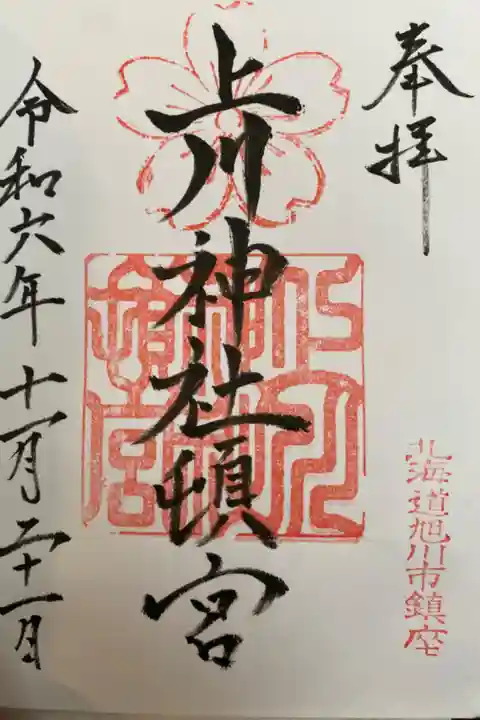 奉拝
北海道旭川市鎮座
上川神社頓宮
上川神社頓宮
令和六年十一月二十一日